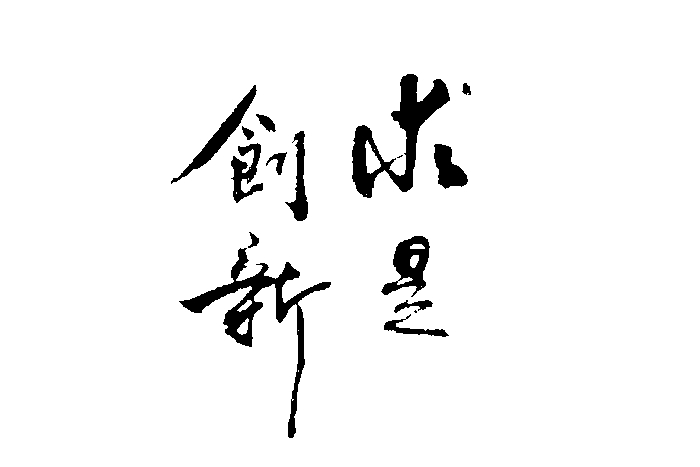 求是
創新